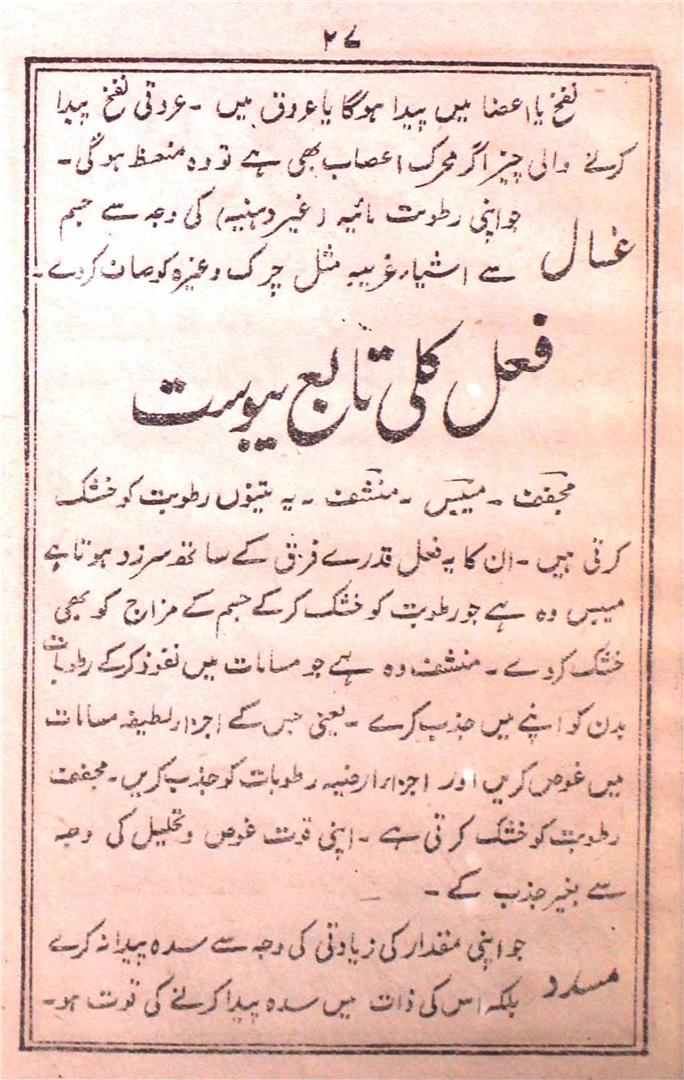 ۲۷
نفخ یا اعضا میں پیدا ہوگا یا عروق میں ۔ عروقی نفخ پیدا
کرنے والی چیز اگر محرک اعصاب بھی ہے تو وہ منعظ ہوگی۔
جو اپنی رطوبت مائیہ (غیر دہنیہ) کی وجہ سے جسم
غسال سے اشیاء غریبہ مثل چرک وغیرہ کو صاف کردے۔
فعل کلی تابع یبوست
مجفف ۔ میبس ۔ منشف ۔ یہ تینوں رطوبت کو خشک
کرتی ہیں ۔ ان کا یہ فعل قدرے فرق کے ساتھ سرزد ہوتا ہے
میبس وہ ہے جو رطوبت کو خشک کرکے جسم کے مزاج کو بھی
خشک کردے ۔ منشف وہ ہے جو مسامات میں نفوذ کرکے رطوبات
بدن کو اپنے میں جذب کرے ۔ یعنی جس کے اجزاء لطیفہ مسامات
میں غوص کریں اور اجزاء ارضیہ رطوبات کو جذب کریں ۔ مجفف
رطوبت کو خشک کرتی ہے ۔ اپنی قوت غوص و تحلیل کی وجہ
سے بغیر جذب کے ۔
جو اپنی مقدار کی زیادتی کی وجہ سے سدہ پیدا نہ کرے
مسدد بلکہ اس کی ذات میں سدہ پیدا کرنے کی قوت ہو۔